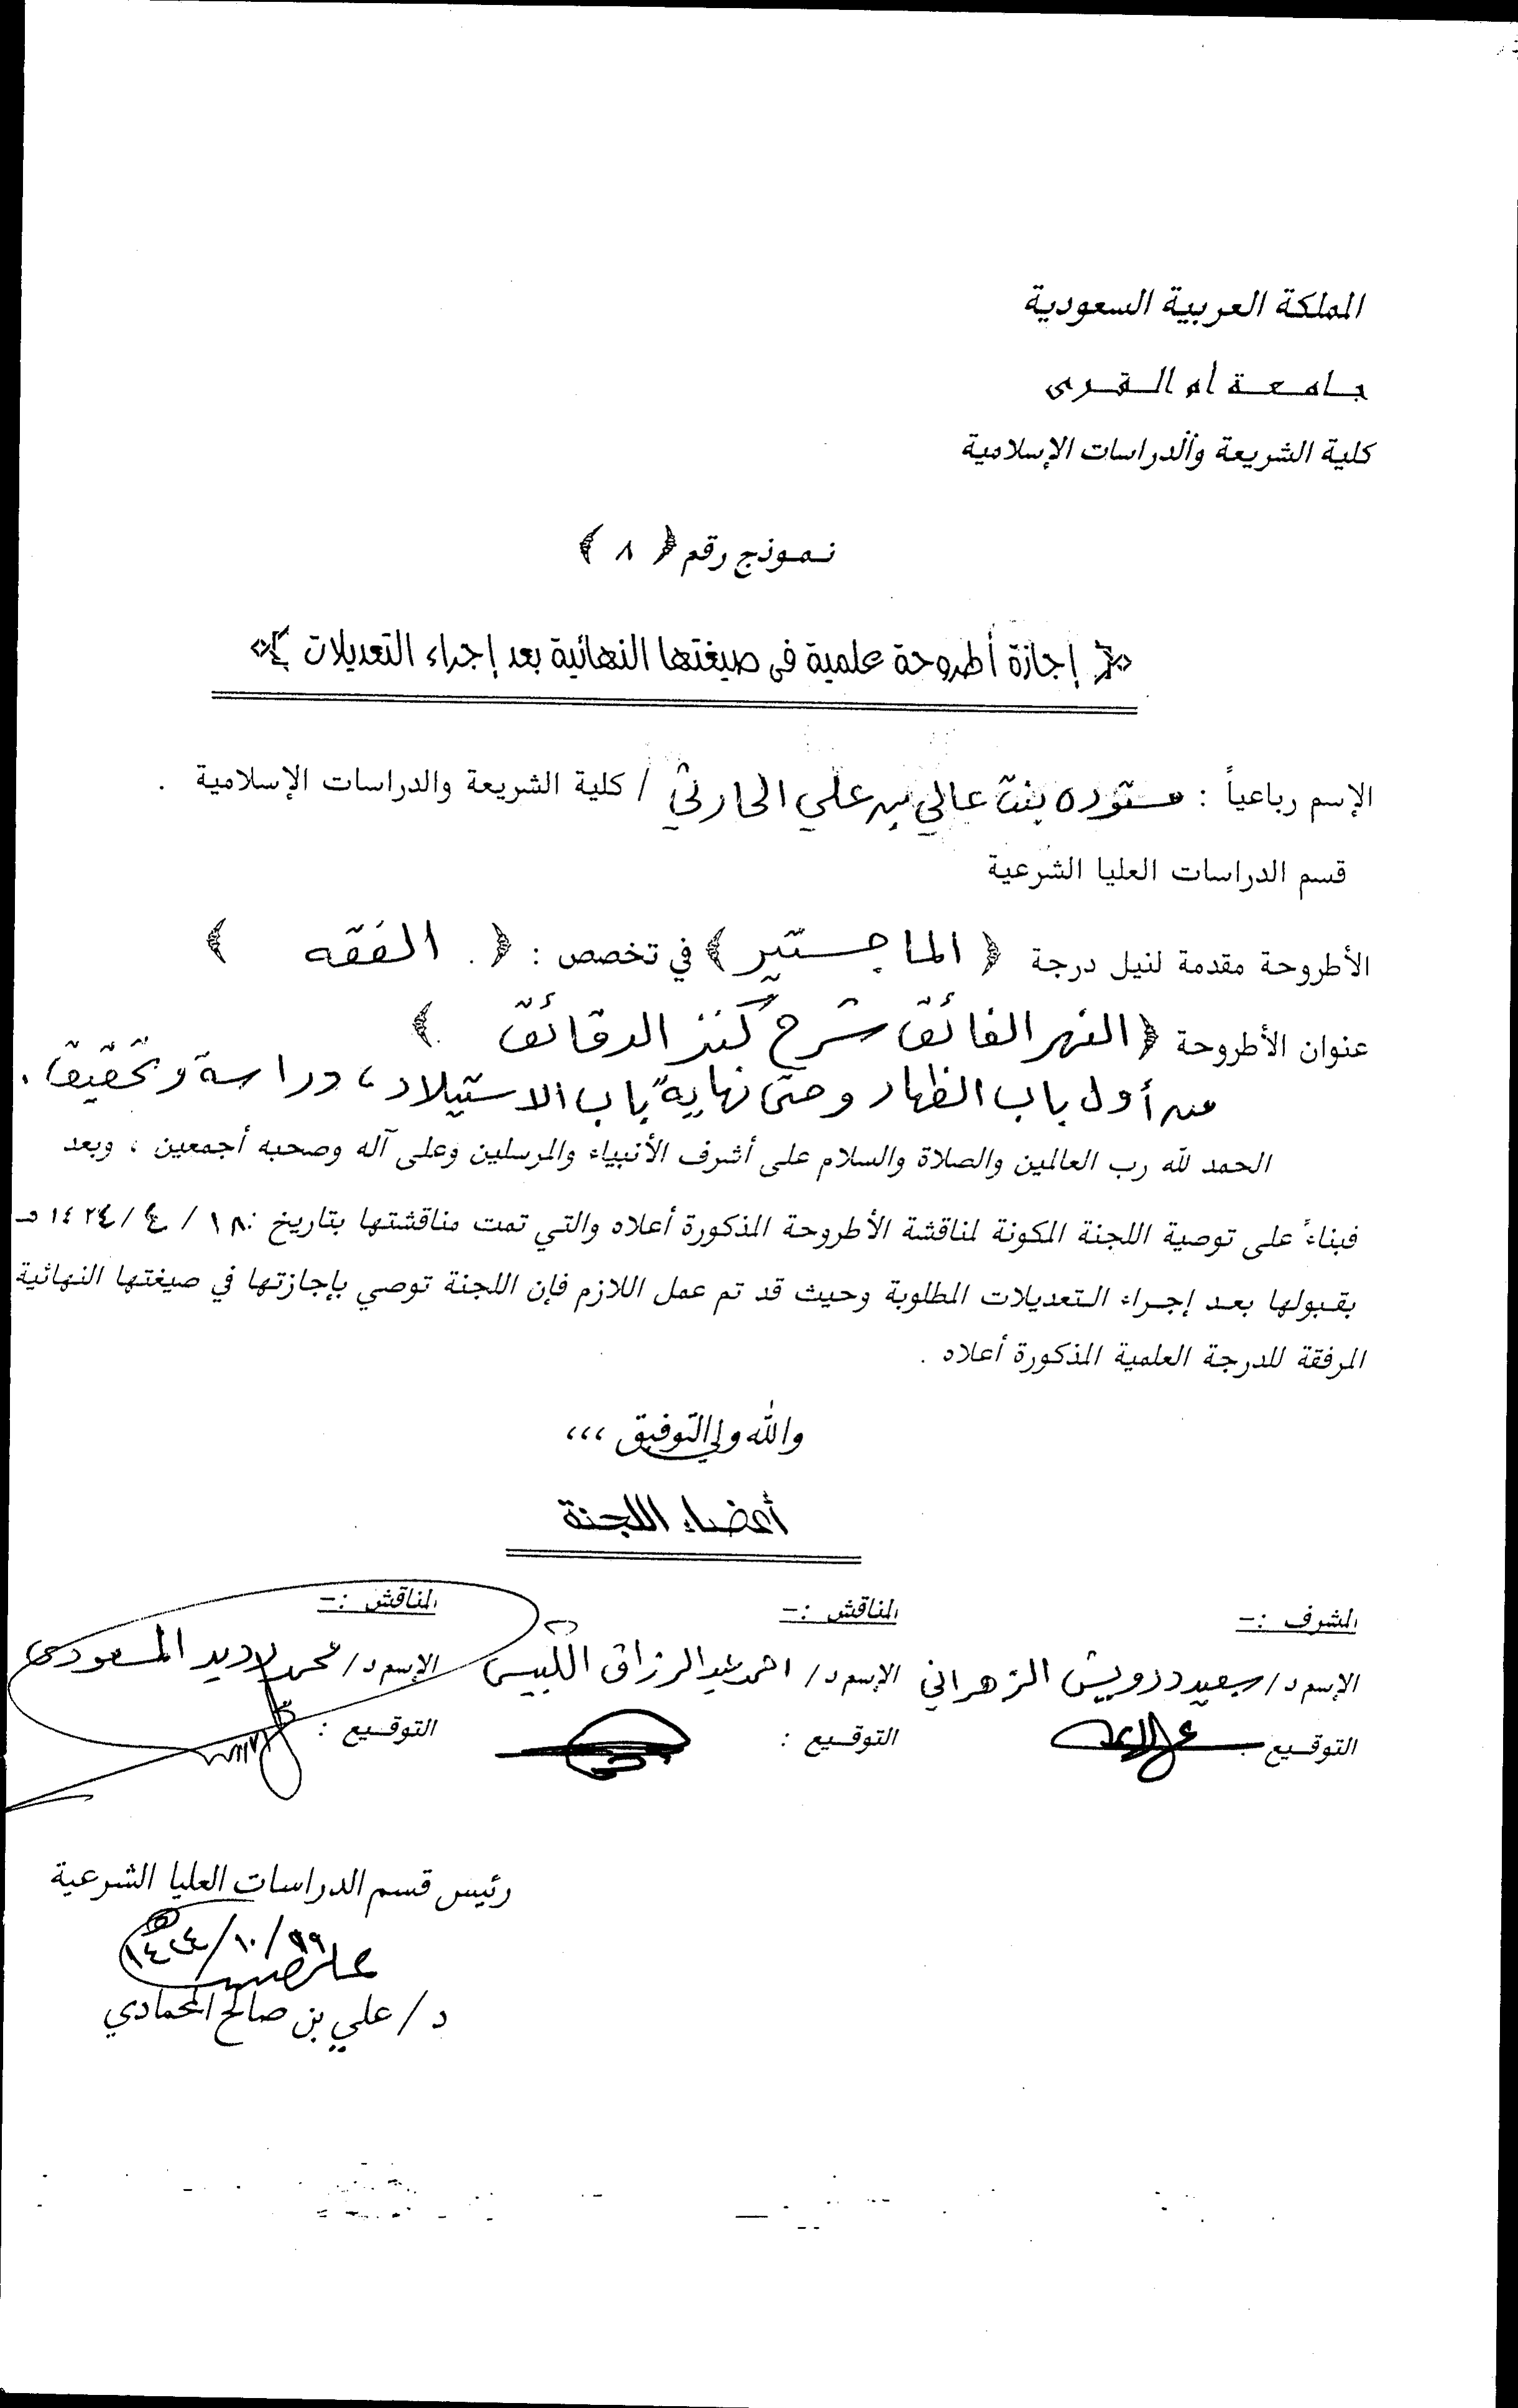 المملكة العربية السعودية
جامعة أم القرى
كلية الشريعة والدراسات الإسلامية
نموذج رقم ﴿ ٨ ﴾
﴿ إجازة أطروحة علمية في صيغتها النهائية بعد إجراء التعديلات ﴾
الإسم رباعياً : مستوره بنت عالي بن علي الحارثي / كلية الشريعة والدراسات الإسلامية .
قسم الدراسات العليا الشرعية
الأطروحة مقدمة لنيل درجة ﴿ الماجستير ﴾ في تخصص : ﴿ الفقه ﴾
عنوان الأطروحة ﴿ النهر الفائق شرح كنز الدقائق ﴾
من أول باب الظهار وحتى نهاية باب الاستيلاد ، دراسة وتحقيق .
الحمد لله رب العالمين والصلاة والسلام على أشرف الأنبياء والمرسلين وعلى آله وصحبه أجمعين ، وبعد
فبناءً على توصية اللجنة المكونة لمناقشة الأطروحة المذكورة أعلاه والتي تمت مناقشتها بتاريخ : ١٨ / ٤ / ١٤٢٤ هـ
بقبولها بعد إجراء التعديلات المطلوبة وحيث قد تم عمل اللازم فإن اللجنة توصي بإجازتها في صيغتها النهائية
المرفقة للدرجة العلمية المذكورة أعلاه .
والله ولي التوفيق ،،،
أعضاء اللجنة
المشرف :- المناقش :- المناقش :-
الإسم د/ سعيد درويش الزهراني الإسم د/ احمد عبدالرزاق الكبيسي الإسم د/ محمد المسعودي
التوقيع التوقيع : التوقيع :
رئيس قسم الدراسات العليا الشرعية
١٠/ ١٤٢٤
د / علي بن صالح المحمادي